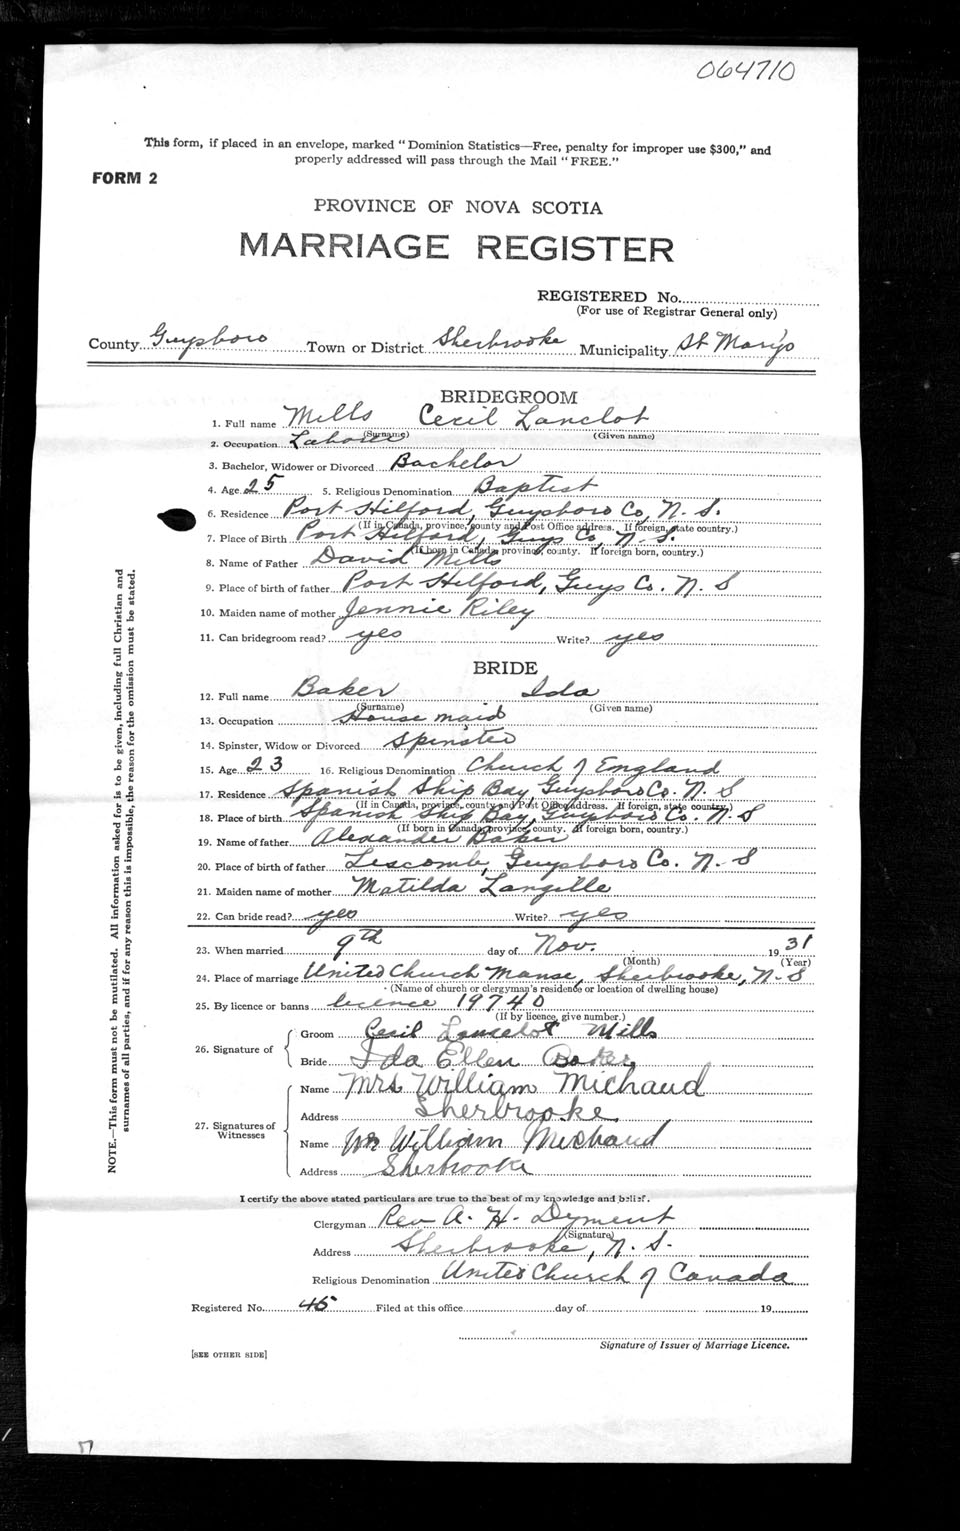 064710
This form, if placed in an envelope, marked "Dominion Statistics—Free, penalty for improper use $300," and
properly addressed will pass through the Mail "FREE."
FORM 2
PROVINCE OF NOVA SCOTIA
MARRIAGE REGISTER
REGISTERED No.
(For use of Registrar General only)
County Guysboro Town or District Sherbrooke Municipality St Mary's
BRIDEGROOM
1. Full name Mills Cecil Lanclot
(Surname) (Given name)
2. Occupation Laborer
3. Bachelor, Widower or Divorced Bachelor
4. Age 25 5. Religious Denomination Baptist
6. Residence Port Hilford, Guysboro Co, N. S.
(If in Canada, province, county and Post Office address. If foreign, state country.)
7. Place of Birth Port Hilford, Guys Co, N. S.
(If born in Canada, province, county. If foreign born, country.)
8. Name of Father David Mills
9. Place of birth of father Port Hilford, Guys Co. N. S
10. Maiden name of mother Jennie Riley
11. Can bridegroom read? yes Write? yes
BRIDE
12. Full name Baker Ida
(Surname) (Given name)
13. Occupation House maid
14. Spinster, Widow or Divorced Spinster
15. Age 23 16. Religious Denomination Church of England
17. Residence Spanish Ship Bay, Guysboro Co. N. S
(If in Canada, province, county and Post Office address. If foreign, state country.)
18. Place of birth Spanish Ship Bay, Guysboro Co. N. S
(If born in Canada, province, county. If foreign born, country.)
19. Name of father Alexander Baker
20. Place of birth of father Liscomb, Guysboro Co. N. S
21. Maiden name of mother Matilda Langille
22. Can bride read? yes Write? yes
23. When married 9th day of Nov. 1931
(Month) (Year)
24. Place of marriage United Church Manse, Sherbrooke, N. S
(Name of church or clergyman's residence or location of dwelling house)
25. By licence or banns licence 19740
(If by licence, give number.)
26. Signature of Groom Cecil Lancelot Mills
Bride Ida Ellen Baker
27. Signatures of Witnesses Name Mrs William Michaud
Address Sherbrooke
Name William Michaud
Address Sherbrooke
I certify the above stated particulars are true to the best of my knowledge and belief.
Clergyman Rev A. H. Dyment
(Signature)
Address Sherbrooke, N. S.
Religious Denomination United Church of Canada
Registered No. 45 Filed at this office day of 19
Signature of Issuer of Marriage Licence.
[SEE OTHER SIDE]
NOTE.—This form must not be mutilated. All information asked for is to be given, including full Christian and
surnames of all parties, and if for any reason this is impossible, the reason for the omission must be stated.